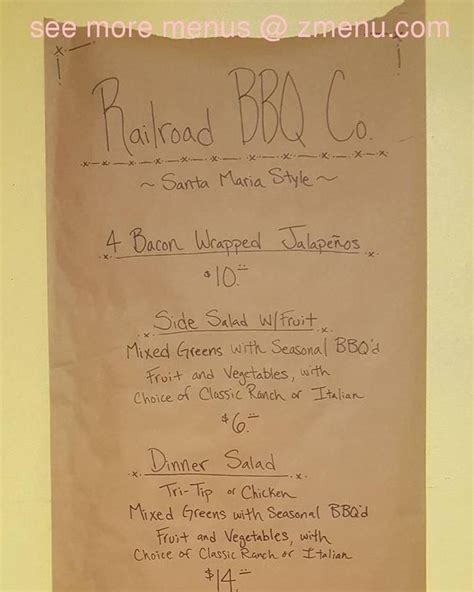 see more menus @ zmenu.com
Railroad BBQ Co.
~ Santa Maria Style ~
4 Bacon Wrapped Jalapeños
$10.--
Side Salad W/Fruit
Mixed Greens with Seasonal BBQ'd
Fruit and Vegetables, with
Choice of Classic Ranch or Italian
$6.--
Dinner Salad
Tri-Tip or Chicken
Mixed Greens with Seasonal BBQ'd
Fruit and Vegetables, with
Choice of Classic Ranch or Italian
$14.--